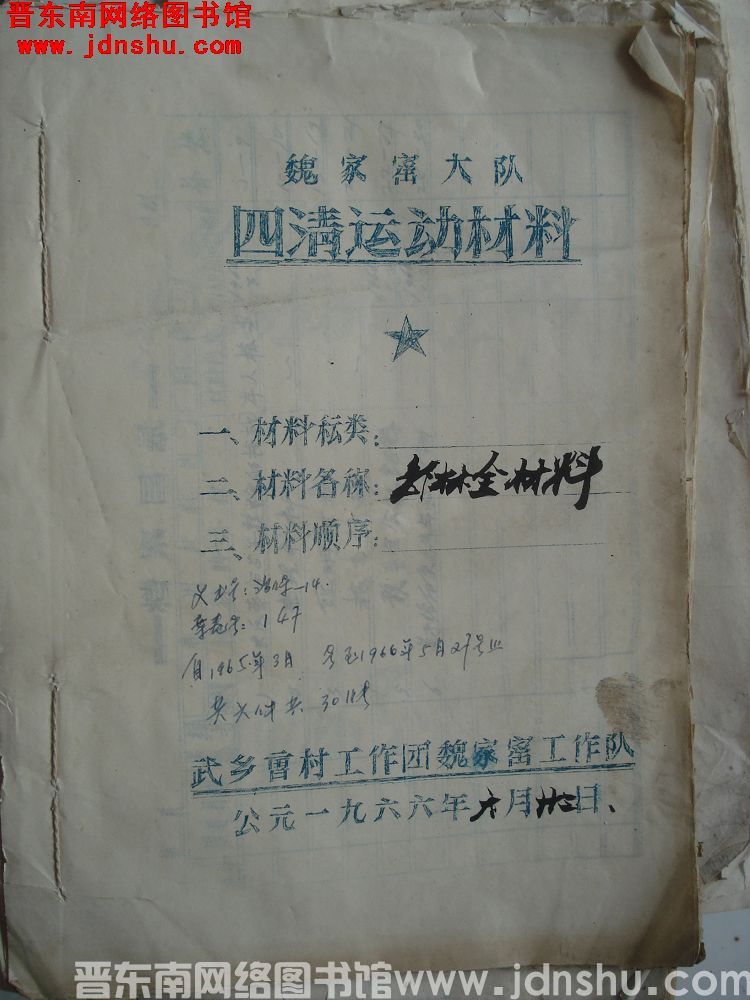 晋东南网络图书馆
www.jdnshu.com
魏家窑大队
四清运动材料
一、材料种类：
二、材料名称：林全材料
三、材料顺序：
14.
147
自1965年3月 1966年5月27号止
共 30
武乡曹村工作团魏家窑工作队
公元一九六六年六月 日、
晋东南网络图书馆www.jdnshu.com